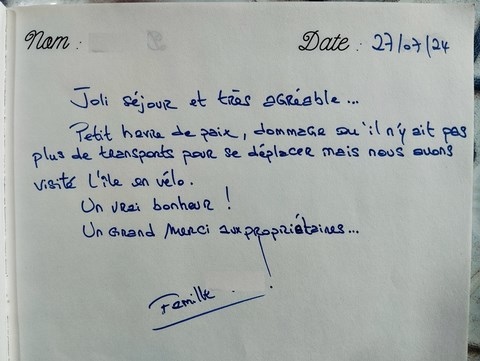 Nom :
Date : 27/07/24
Joli séjour et très agréable...
Petit havre de paix, dommage qu'il n'y ait pas
plus de transports pour se déplacer mais nous avons
visité l'île en vélo.
Un vrai bonheur !
Un Grand Merci aux propriétaires...
Famille